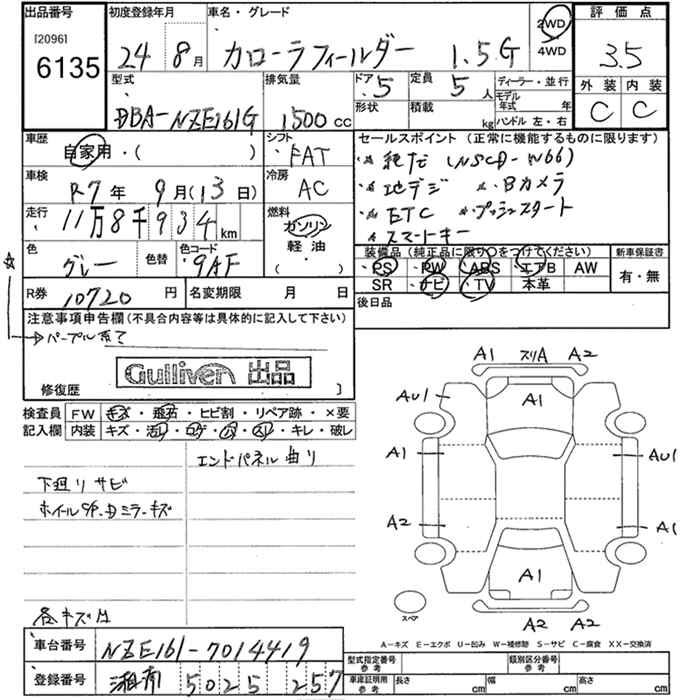 出品番号 [2096] 6135
初度登録年月 24年 8月
車名・グレード カローラフィールダー 1.5G
2WD 4WD
評価点 3.5
外装 内装
C C
型式 DBA-NZE161G
排気量 1500cc
ドア 5
定員 5人
形状 積載 kg
ディーラー・並行
モデル年式 年
ハンドル 左・右
車歴 自家用・( )
シフト FAT
車検 R7年 9月(13日)
冷房 AC
走行 11万8千934km
燃料 ガソリン 軽油 ( )
色 グレー 色替
色コード 9AF
R券 10720円
名変期限 月 日
セールスポイント (正常に機能するものに限ります)
純ナビ(NSCD-W66)
地デジ Bカメラ
ETC プッシュスタート
スマートキー
装備品 (純正品に限り○をつけてください)
新車保証書
PS PW ABS エアB AW
SR ナビ TV 本革
有・無
後日品
注意事項申告欄(不具合内容等は具体的に記入して下さい)
パープル系で
Gulliver 出品
修復歴 ]
検査員 FW キズ・飛石・ヒビ割・リペア跡・×要
記入欄 内装 キズ・汚レ・コゲ・シミ・スレ・キレ・破レ
エンドパネル曲リ
下廻リサビ
ホイールCP・Dミラーキズ
各キズ凹
A1 スリA A2
AU1 A1
A1 AU1
A2 A1
A1
A2 A2
スペア
A-キズ E-エクボ U-凹み W-補修跡 S-サビ C-腐食 XX-交換済
車台番号 NZE161-7014419
登録番号 湘南 5025 257
型式指定番号 参考
類別区分番号 参考
車庫証明用 参考 長さ cm 幅 cm 高さ cm